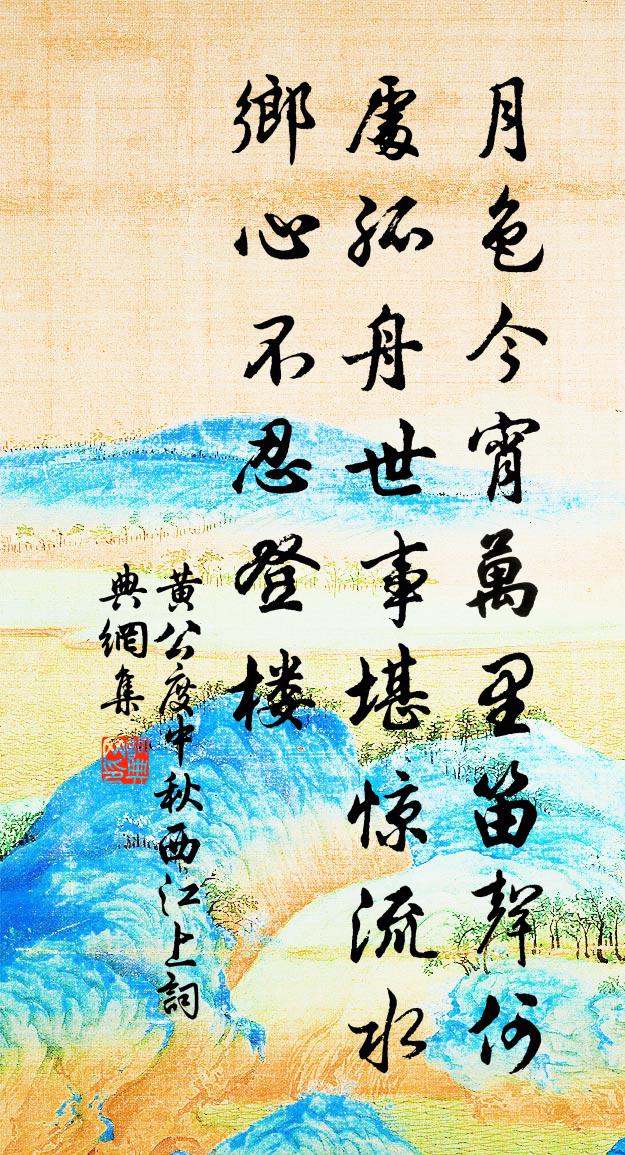 月色今宵萬里笛聲何
處孤舟世事堪惊流水
鄉心不忍登楼
黃公度中秋西江上詞
典網集